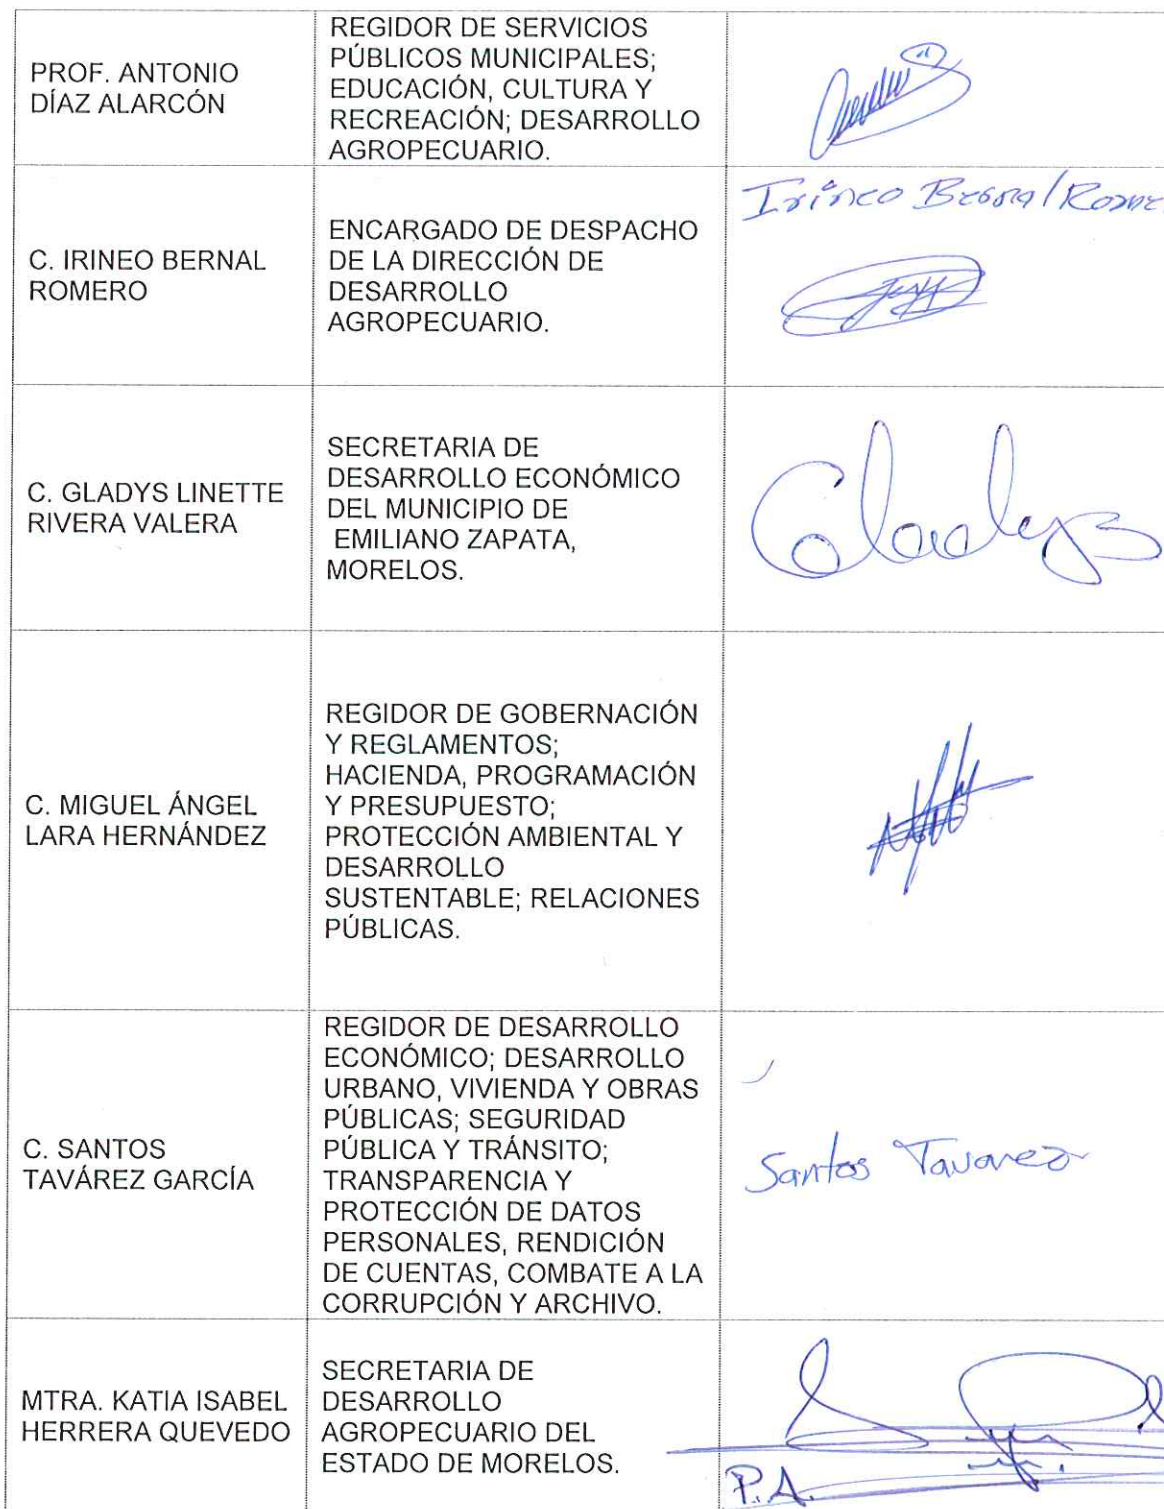 PROF. ANTONIO
DÍAZ ALARCÓN
REGIDOR DE SERVICIOS
PÚBLICOS MUNICIPALES;
EDUCACIÓN, CULTURA Y
RECREACIÓN; DESARROLLO
AGROPECUARIO.
C. IRINEO BERNAL
ROMERO
ENCARGADO DE DESPACHO
DE LA DIRECCIÓN DE
DESARROLLO
AGROPECUARIO.
Irineo Bernal Rome
C. GLADYS LINETTE
RIVERA VALERA
SECRETARIA DE
DESARROLLO ECONÓMICO
DEL MUNICIPIO DE
EMILIANO ZAPATA,
MORELOS.
Gladys
C. MIGUEL ÁNGEL
LARA HERNÁNDEZ
REGIDOR DE GOBERNACIÓN
Y REGLAMENTOS;
HACIENDA, PROGRAMACIÓN
Y PRESUPUESTO;
PROTECCIÓN AMBIENTAL Y
DESARROLLO
SUSTENTABLE; RELACIONES
PÚBLICAS.
C. SANTOS
TAVÁREZ GARCÍA
REGIDOR DE DESARROLLO
ECONÓMICO; DESARROLLO
URBANO, VIVIENDA Y OBRAS
PÚBLICAS; SEGURIDAD
PÚBLICA Y TRÁNSITO;
TRANSPARENCIA Y
PROTECCIÓN DE DATOS
PERSONALES, RENDICIÓN
DE CUENTAS, COMBATE A LA
CORRUPCIÓN Y ARCHIVO.
Santos Tavarez
MTRA. KATIA ISABEL
HERRERA QUEVEDO
SECRETARIA DE
DESARROLLO
AGROPECUARIO DEL
ESTADO DE MORELOS.
P.A.